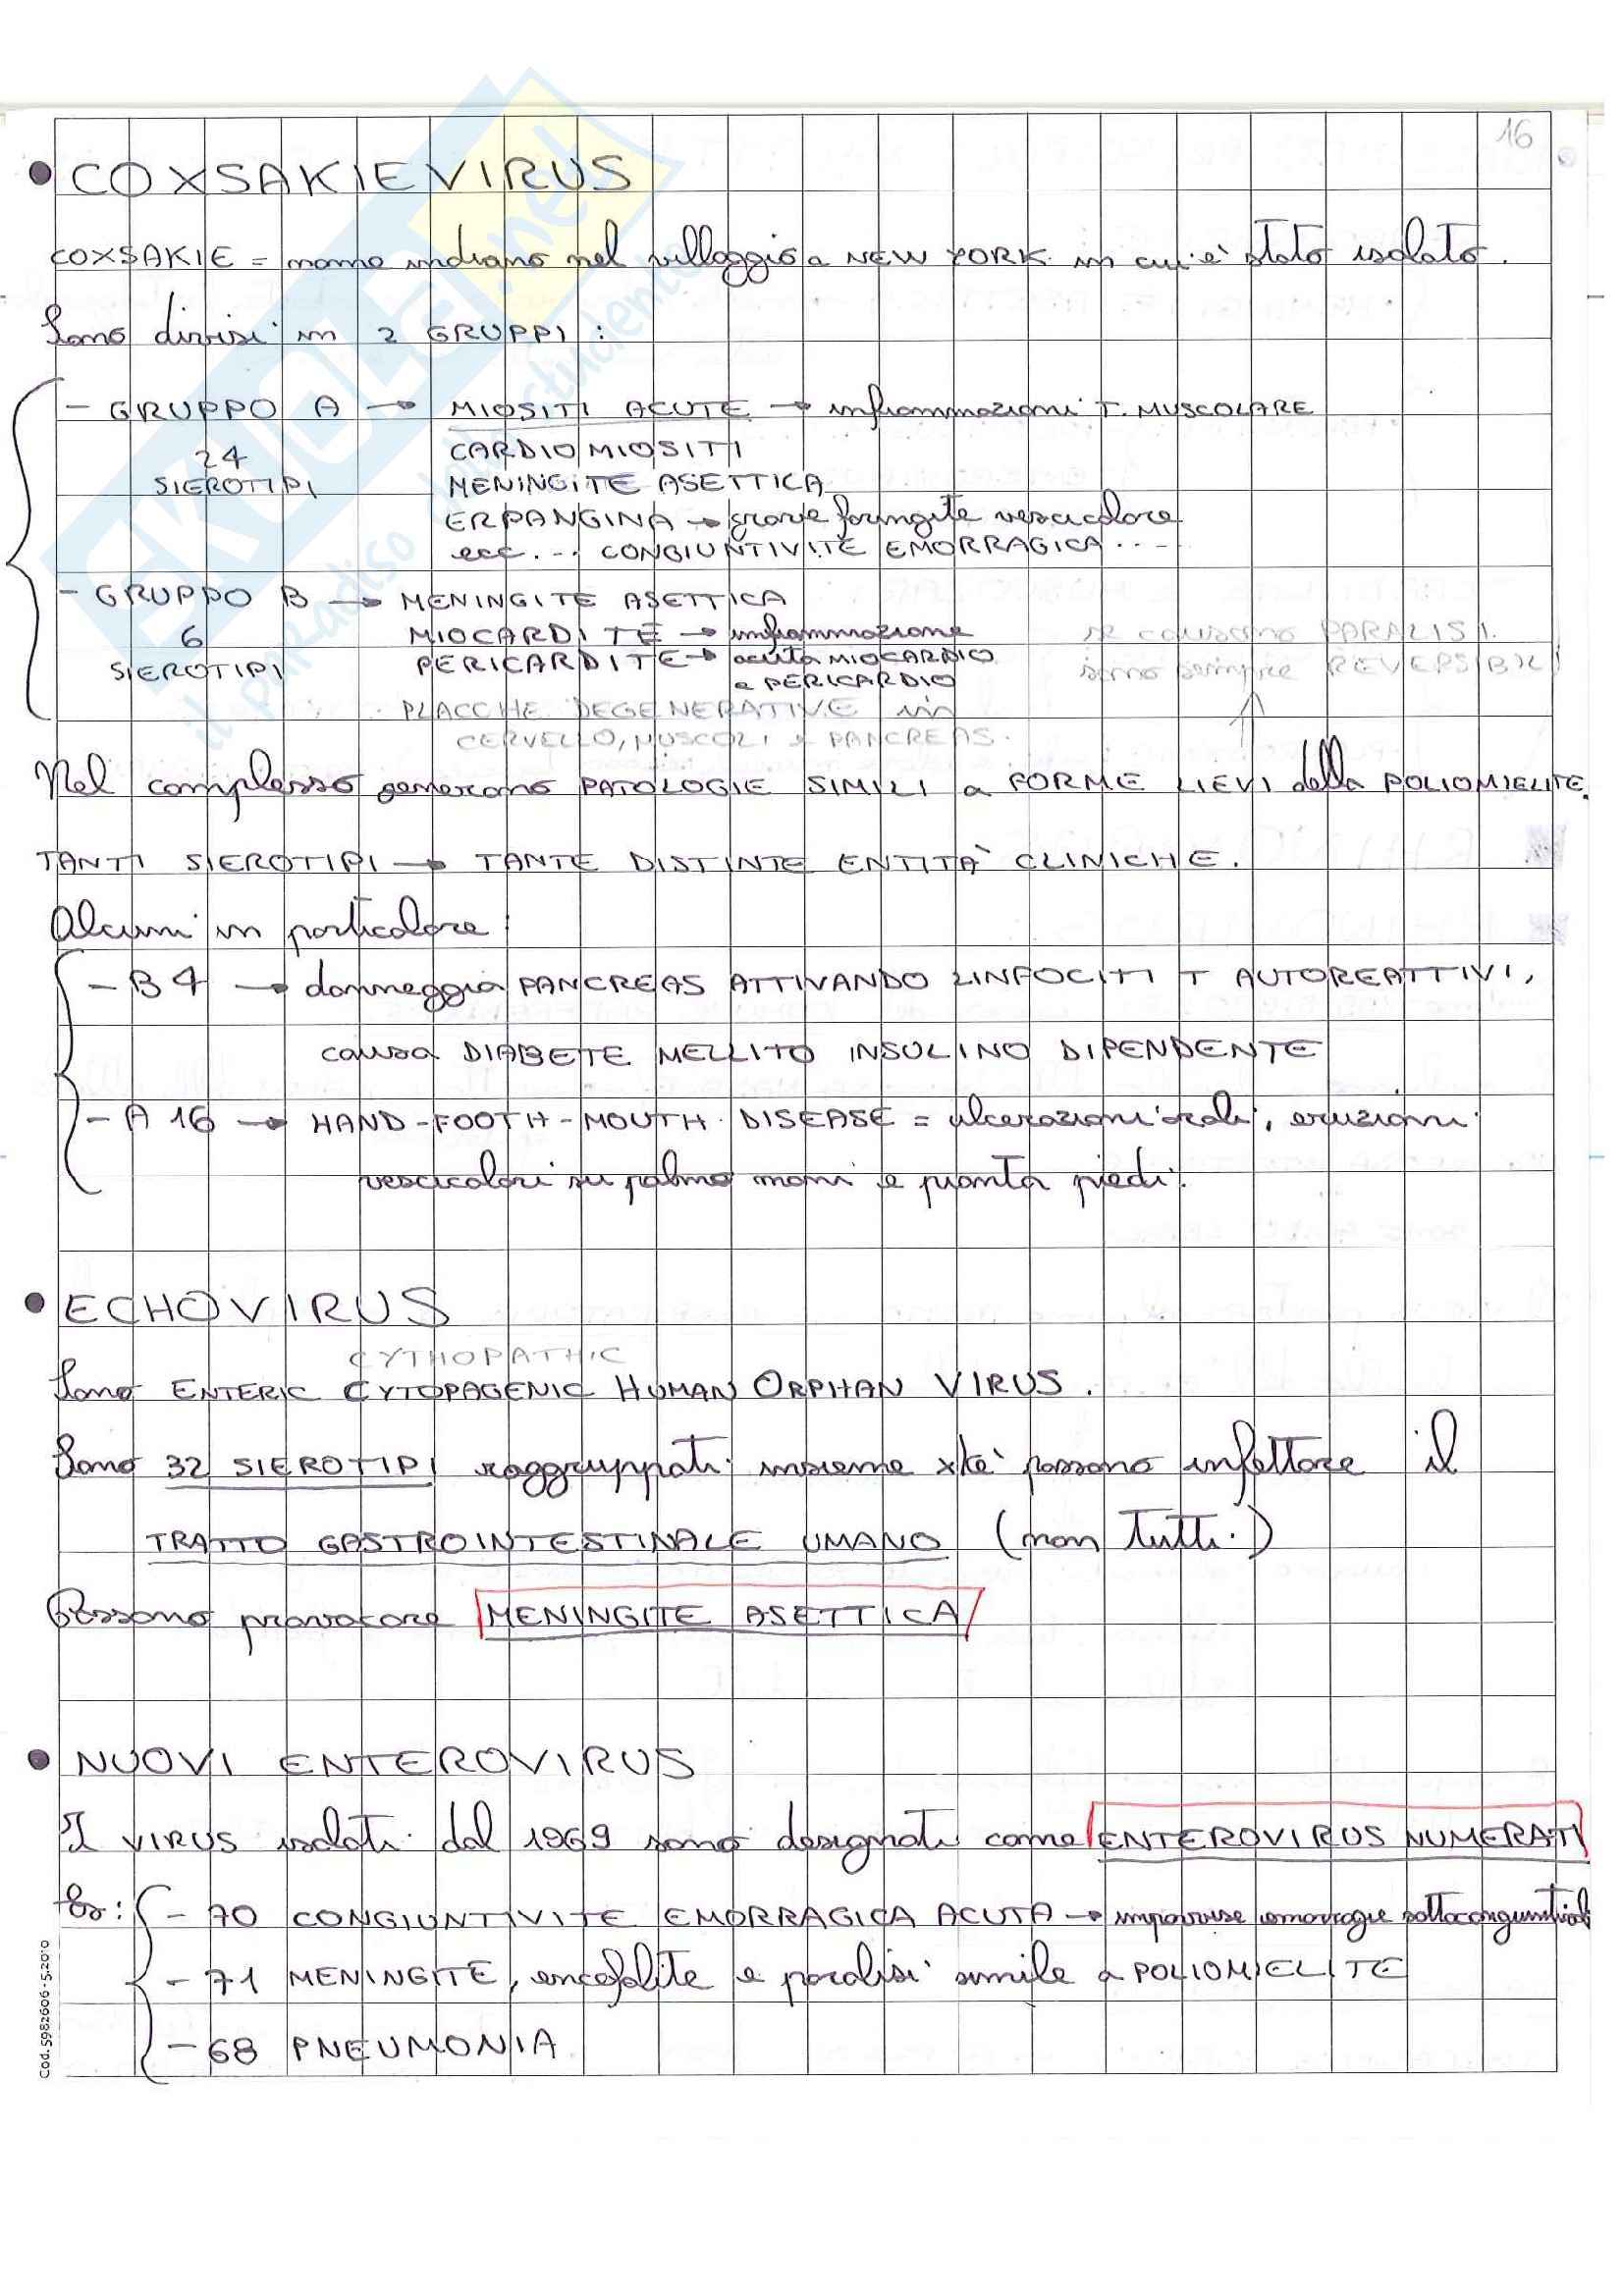 16
• COXSAKIEVIRUS
COXSAKIE = nome indiano nel villaggio a NEW YORK in cui è stato isolato.
Sono divisi in 2 GRUPPI :
- GRUPPO A → MIOSITI ACUTE → infiammazioni T. MUSCOLARE
24 CARDIOMIOSITI
SIEROTIPI MENINGITE ASETTICA
ERPANGINA → grave faringite vescicolare
ecc... CONGIUNTIVITE EMORRAGICA....
- GRUPPO B → MENINGITE ASETTICA
6 MIOCARDITE → infiammazione se causano PARALISI
SIEROTIPI PERICARDITE → acuta MIOCARDIO sono sempre REVERSIBILI
e PERICARDIO
PLACCHE DEGENERATIVE in
CERVELLO, MUSCOLI e PANCREAS.
Nel complesso generano PATOLOGIE SIMILI a FORME LIEVI della POLIOMIELITE.
TANTI SIEROTIPI → TANTE DISTINTE ENTITÀ CLINICHE.
Alcuni in particolare :
- B4 → danneggia PANCREAS ATTIVANDO LINFOCITI T AUTOREATTIVI,
causa DIABETE MELLITO INSULINO DIPENDENTE
- A 16 → HAND-FOOTH-MOUTH DISEASE = ulcerazioni orali, eruzioni
vescicolari su palmo mani e pianta piedi.
• ECHOVIRUS
CYTHOPATHIC
Sono ENTERIC CYTOPAGENIC HUMAN ORPHAN VIRUS.
Sono 32 SIEROTIPI raggruppati insieme xkè possono infettare il
TRATTO GASTROINTESTINALE UMANO (non tutti.)
Possono provocare MENINGITE ASETTICA
• NUOVI ENTEROVIRUS
I VIRUS isolati dal 1969 sono designati come ENTEROVIRUS NUMERATI
Es: - 70 CONGIUNTIVITE EMORRAGICA ACUTA → improvvise emorragie sottocongiuntivali
- 71 MENINGITE, encefalite e paralisi simile a POLIOMIELITE
- 68 PNEUMONIA
Cod. 5982606 - 5.20.0
SKUOLA.net
il paradiso dello studente